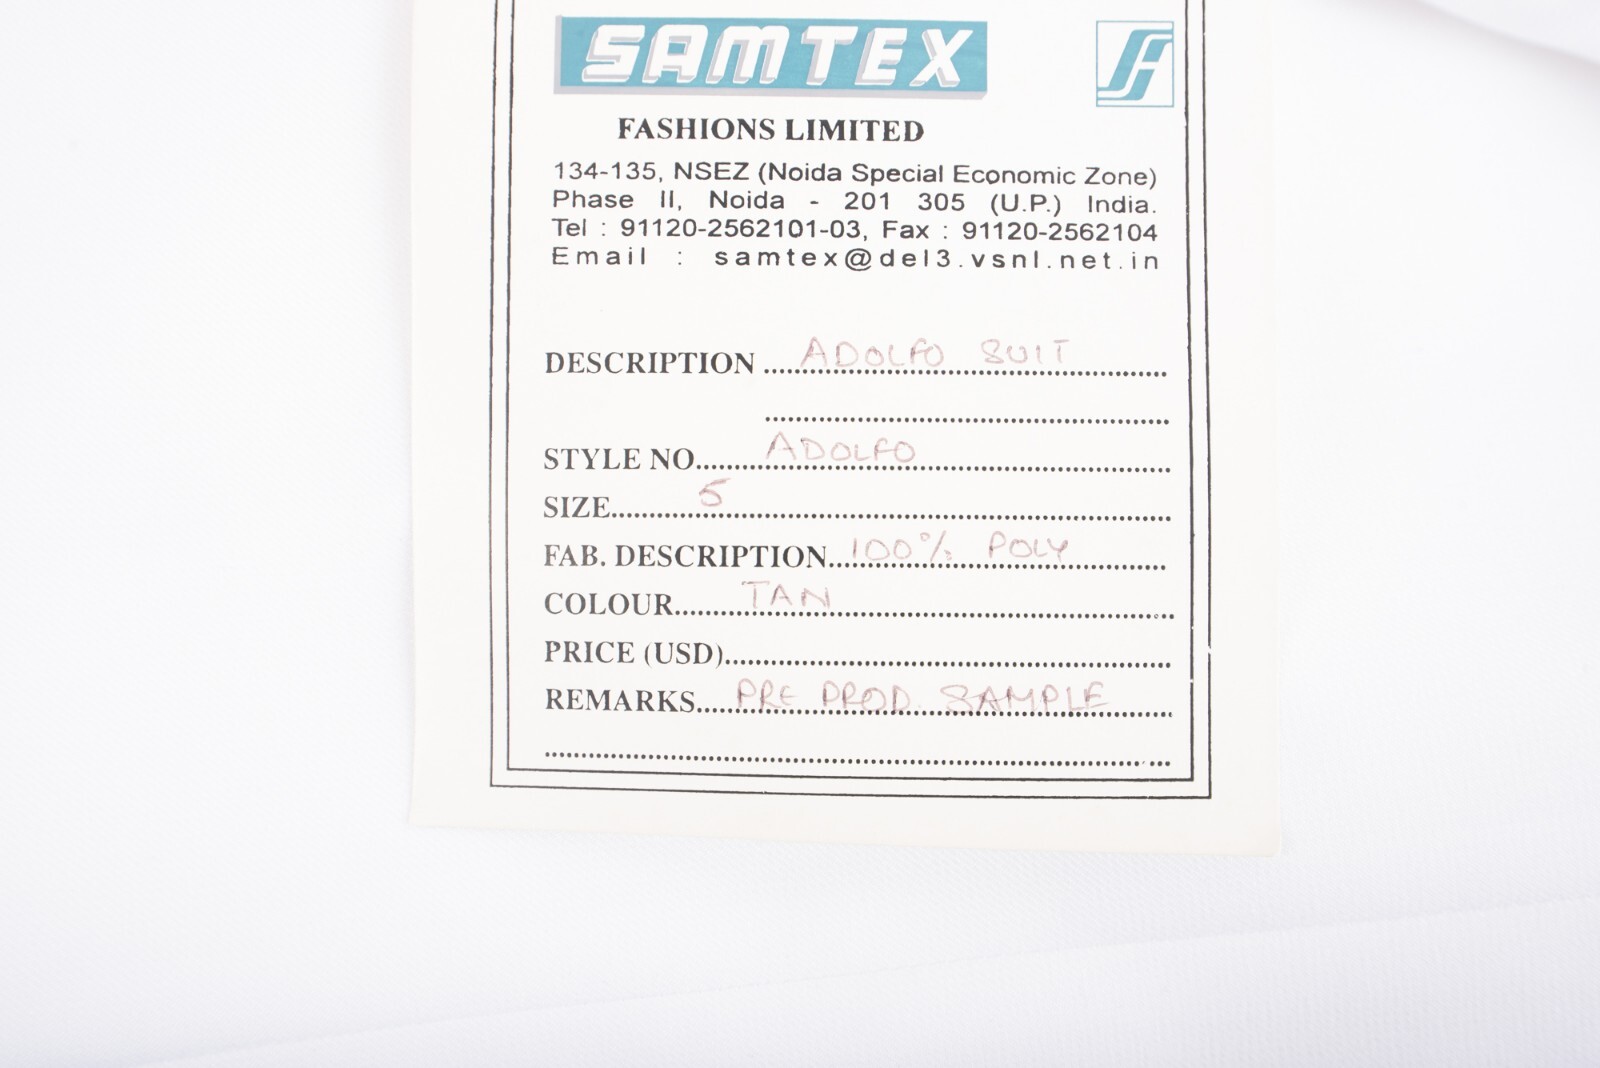 SAMTEX
FASHIONS LIMITED
134-135, NSEZ (Noida Special Economic Zone)
Phase II, Noida - 201 305 (U.P.) India.
Tel : 91120-2562101-03, Fax : 91120-2562104
Email : samtex@del3.vsnl.net.in
DESCRIPTION ADOLFO SUIT
STYLE NO. ADOLFO
SIZE 5
FAB. DESCRIPTION 100% POLY
COLOUR TAN
PRICE (USD)
REMARKS PRE PROD. SAMPLE